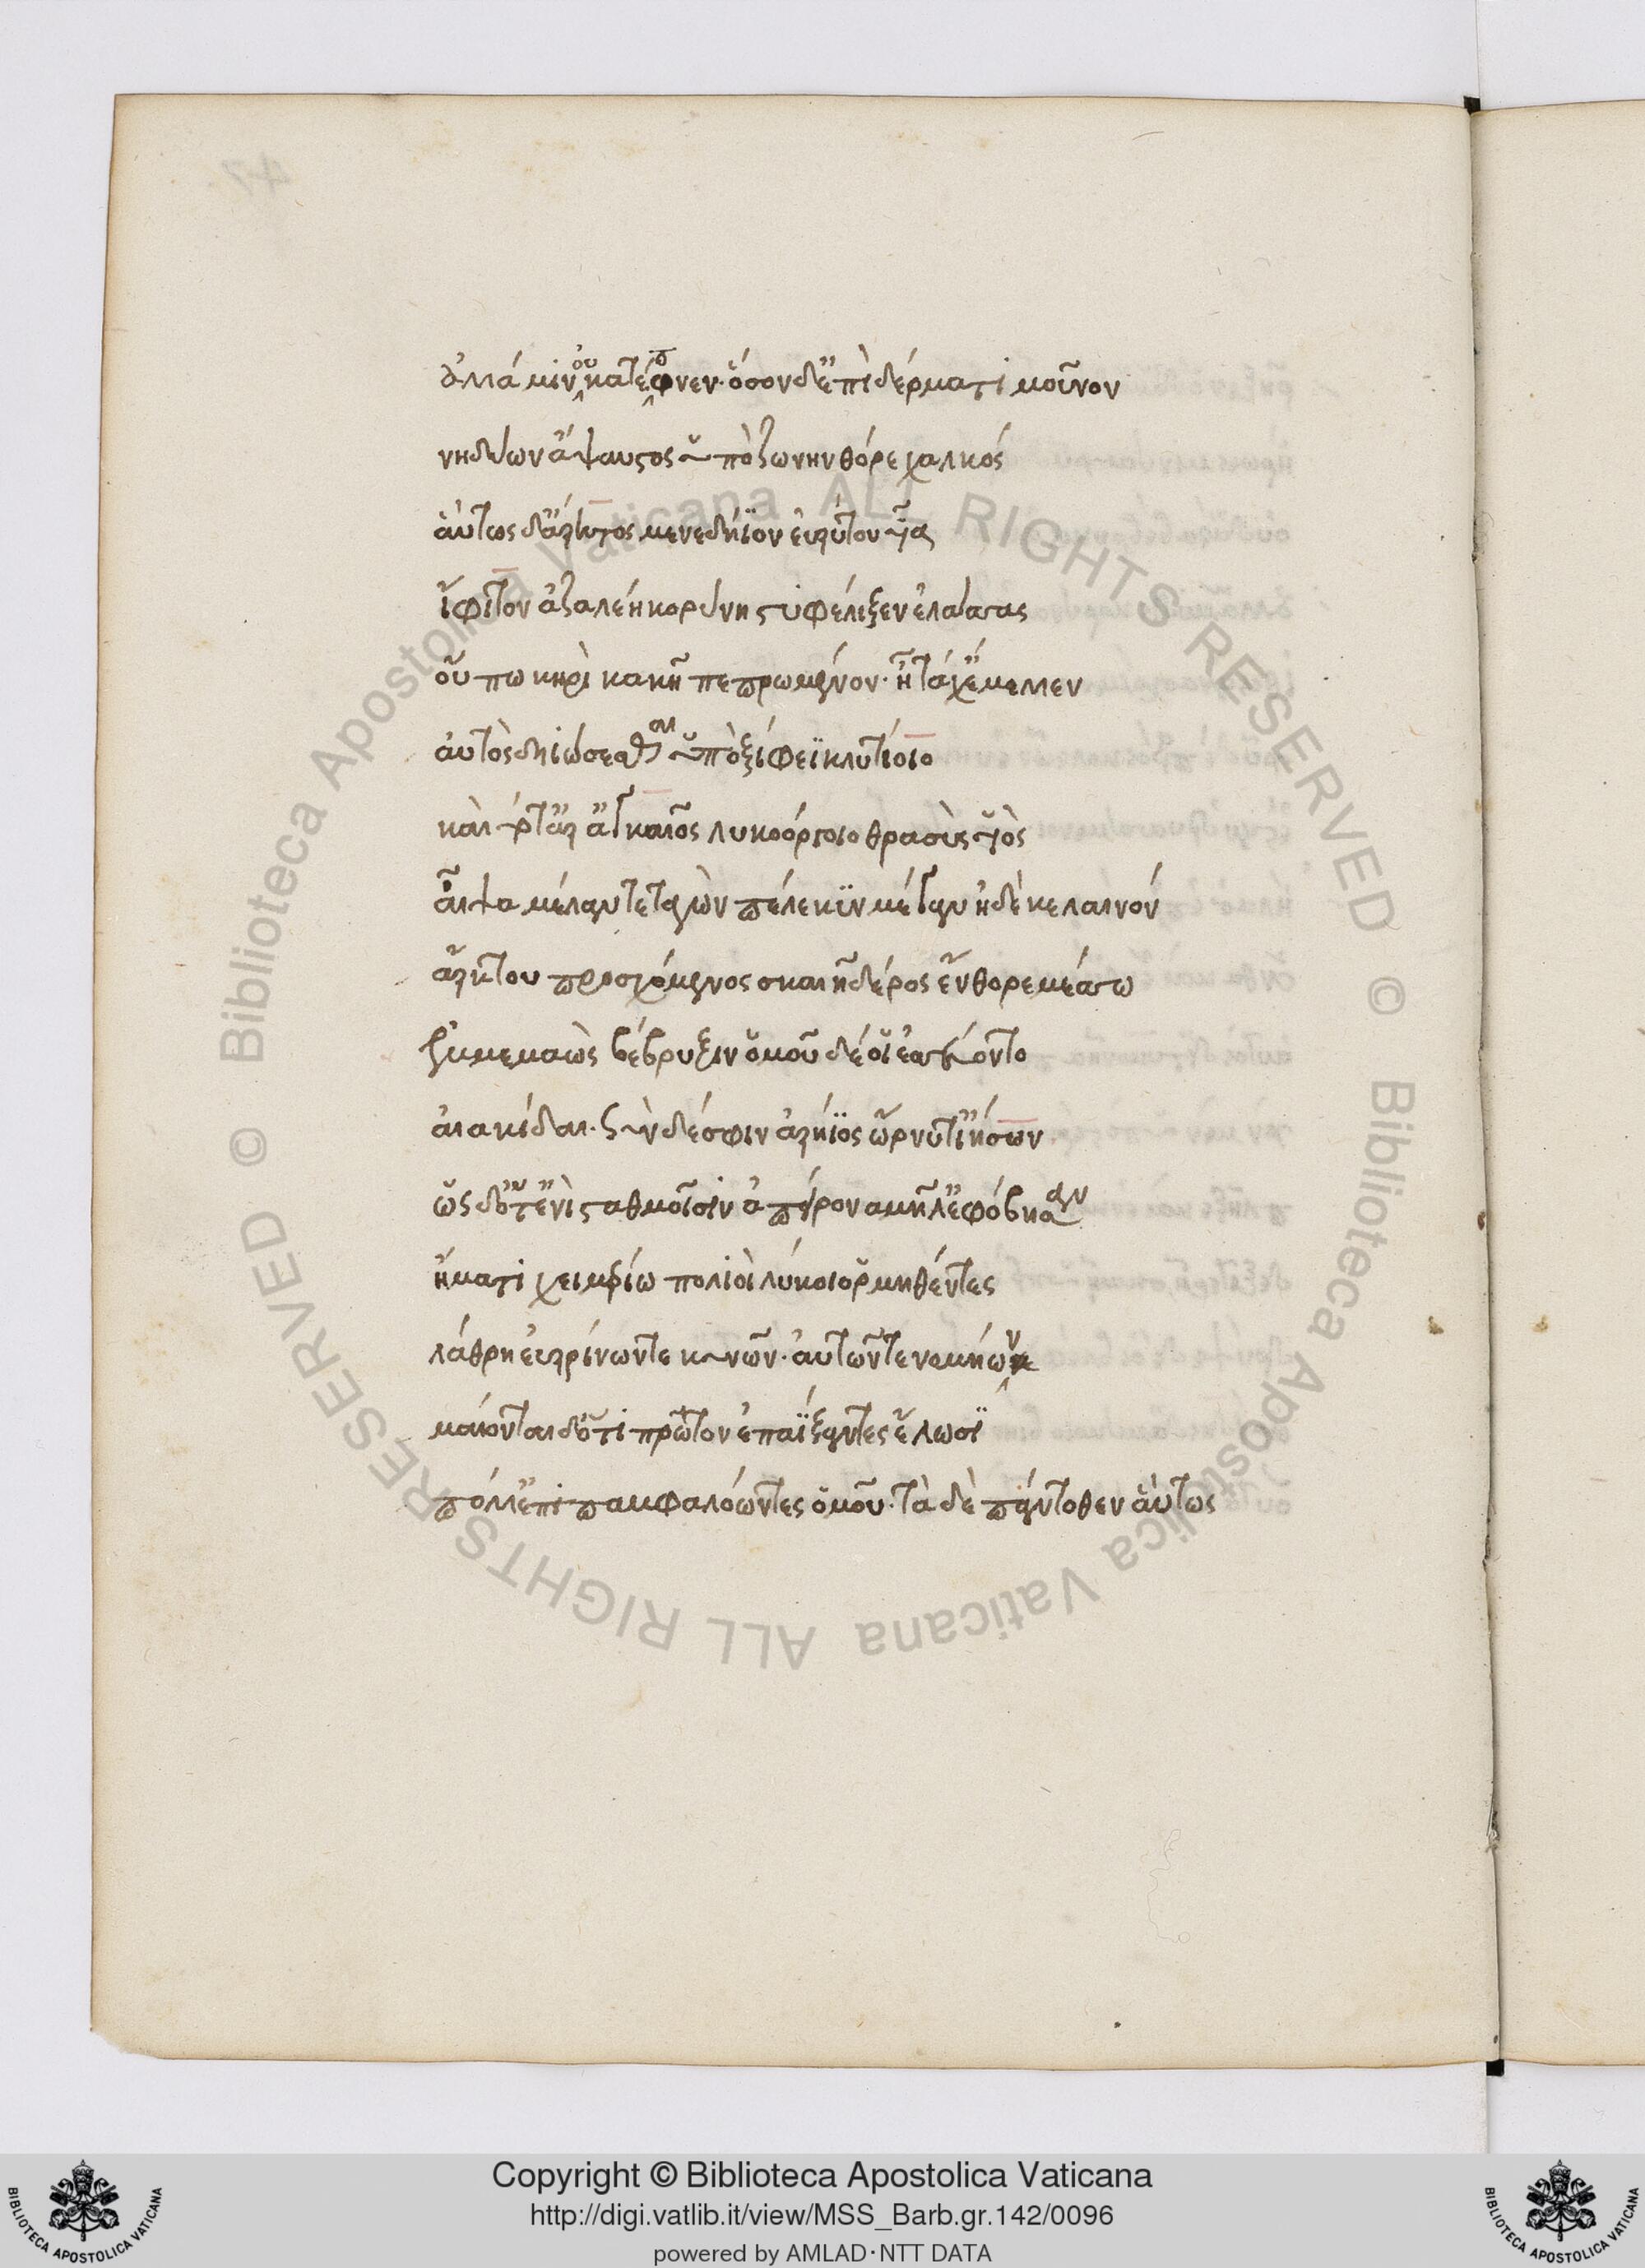 ἀλλά μιν οὐ κατέπεφνεν· ὅσον δ' ἐπὶ δέρματι μοῦνον
νηδυίων ἄψαυστος ὑπὸ ζώνην θόρε χαλκός
αὔτως δ' ἄρητος μενεδήϊον εὐρύτου υἷα
ἴφιτον ἀζαλέη κορύνη στυφέλιξεν ἐλάσσας
οὔπω κηρὶ κακῆ πεπρωμένον· ἦ τάχ' ἔμελλεν
αὐτὸς δηιώσεσθαι ὑπὸ ξίφεϊ κλυτίοιο
καὶ τότ' ἄρ' ἀγκαῖος λυκοόργοιο θρασὺς υἱὸς
αἶψα μέλαν τεταγὼν πέλεκϋν μέγαν ἠδὲ κελαινόν
ἄρκτου προσχόμενος σκαιῆ δέρος ἔνθορε μέσσω
ἐμμεμαὼς βέβρυξιν ὁμοῦ δέ οἱ ἐσσεύοντο
αἰακίδαι· σὺν δέ σφιν ἀρήϊος ὤρνυτ' ἰήσων
ὡς δ' ὅτ' ἐνὶ σταθμοῖσιν ἀπείρονα μῆλ' ἐφόβησαν
ἤματι χειμερίω πολιοὶ λύκοι ὁρμηθέντες
λάθρη ἐυρρίνων τε κυνῶν· αὐτῶν τε νομήων
μαίονται δ' ὅτι πρῶτον ἐπαΐξαντες ἕλωσϊ
πόλλ' ἐπιπαμφαλόωντες ὁμοῦ· τὰ δὲ πάντοθεν αὔτως
Copyright © Biblioteca Apostolica Vaticana
http://digi.vatlib.it/view/MSS_Barb.gr.142/0096
powered by AMLAD·NTT DATA
© Biblioteca Apostolica Vaticana ALL RIGHTS RESERVED
© Biblioteca Apostolica Vaticana ALL RIGHTS RESERVED
BIBLIOTECA APOSTOLICA VATICANA
BIBLIOTECA APOSTOLICA VATICANA